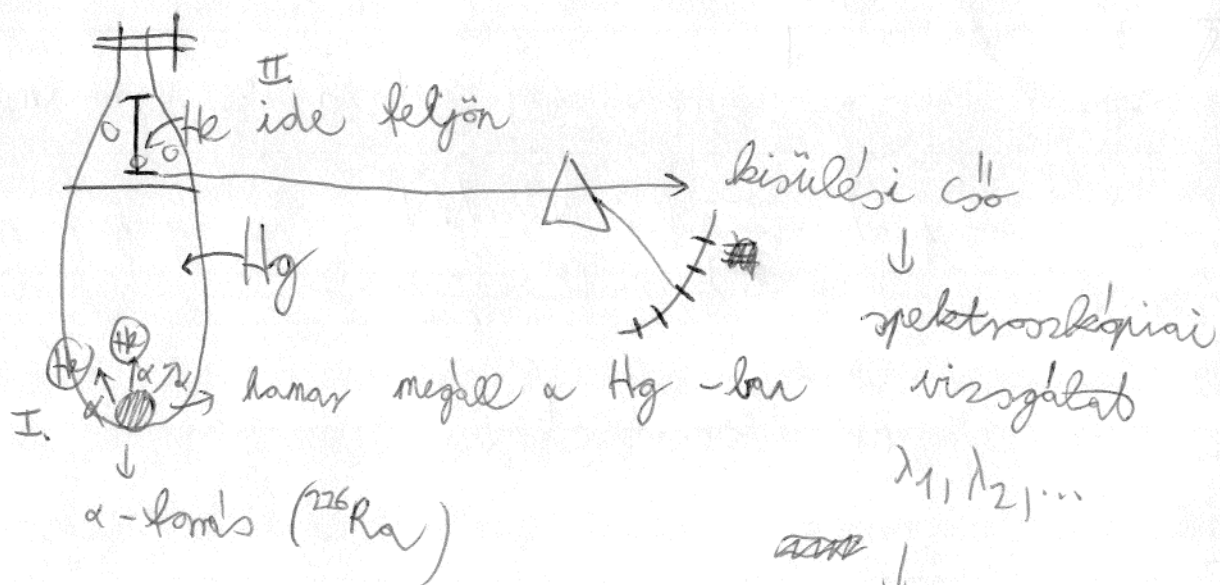 II.
He ide feljön
kisülési cső
Hg
↓
spektroszkópiai
vizsgálat
He He
α α α
I.
→ hamar megáll a Hg-ban
λ₁, λ₂, ...
↓
α-forrás (²²⁶Ra)
↓